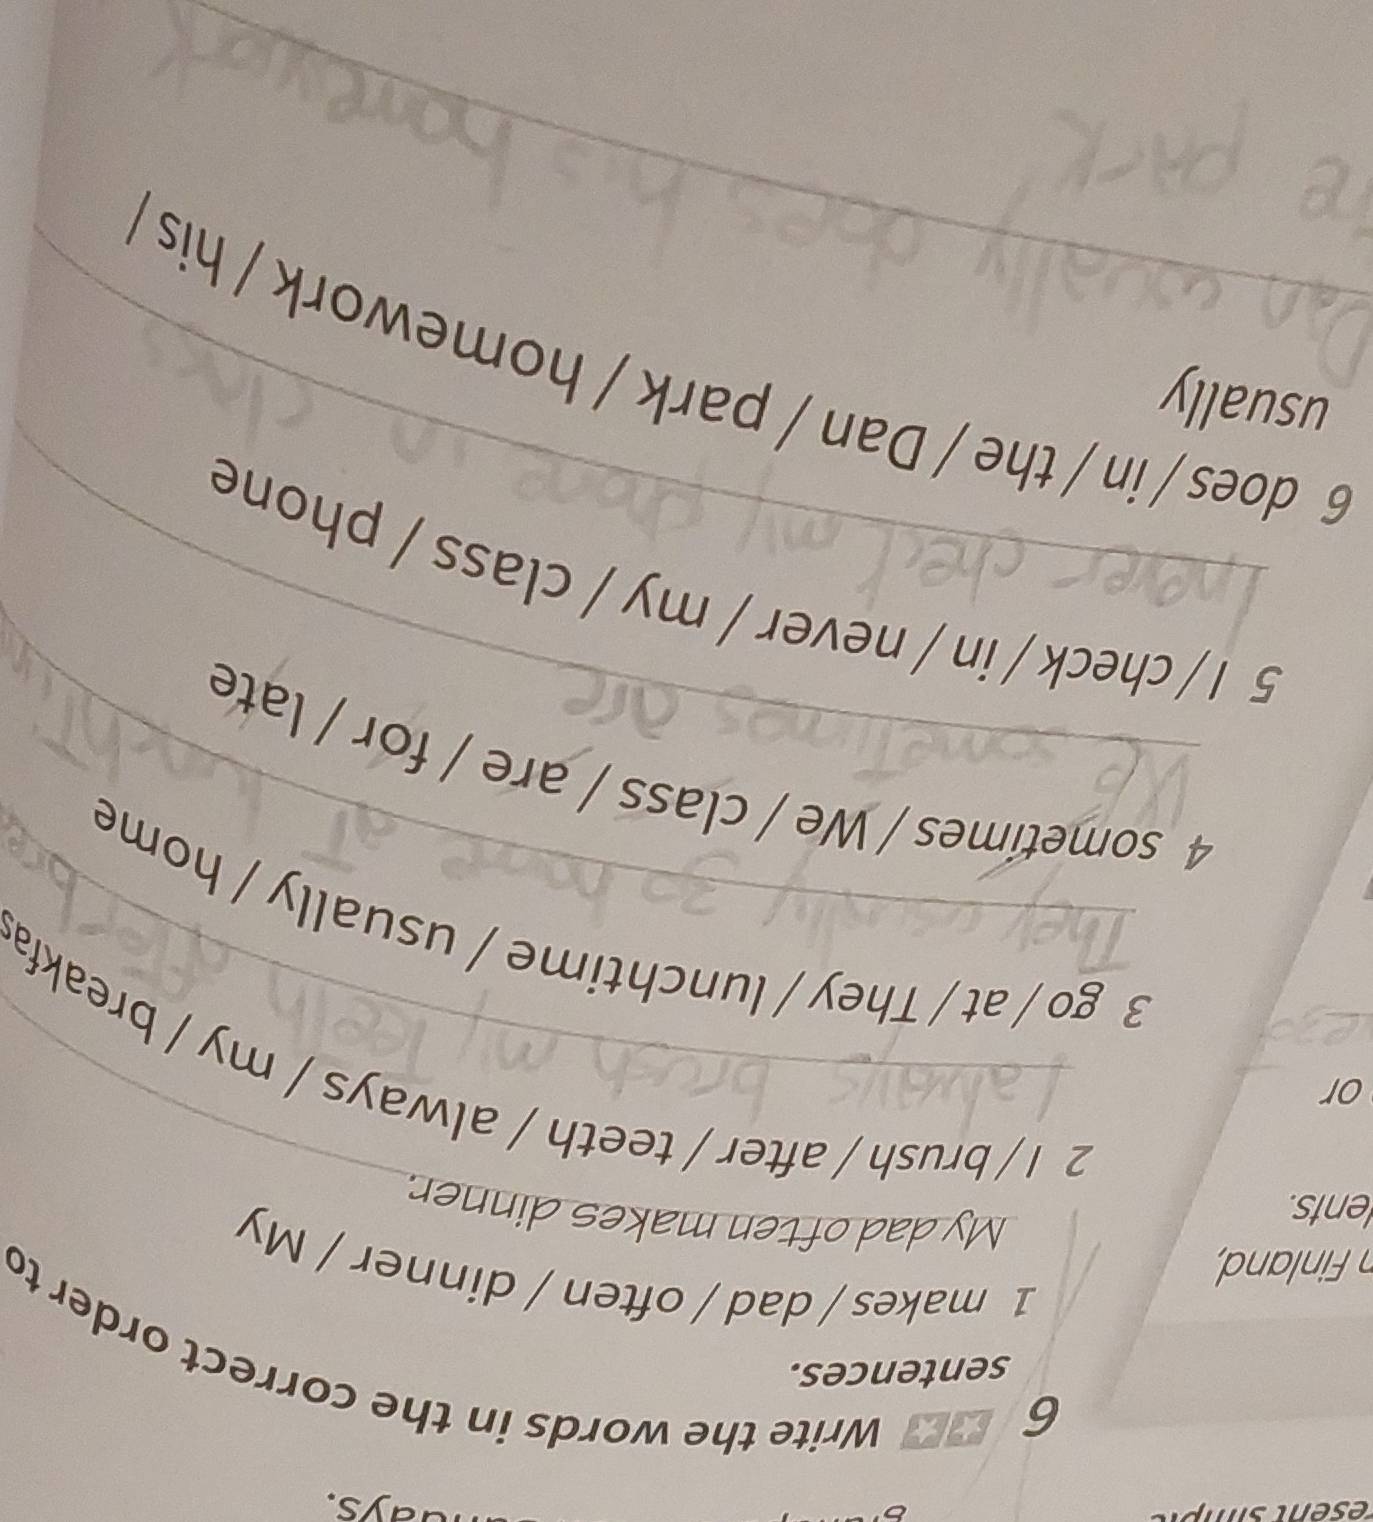 resent simple
n Finland,
dents.
or
6 Write the words in the correct order to
sentences.
1 makes / dad / often / dinner / My
My dad often makes dinner.
2 I / brush / after / teeth / always / my / breakfas
I always brush my teeth after bre
3 go / at / They / lunchtime / usually / home
They usually go home at
4 sometimes / We / class / are / for / late
We sometimes are
5 I / check / in / never / my / class / phone
I never check my phone in class
6 does / in / the / Dan / park / homework / his /
usually
Dan usually does his homework
park